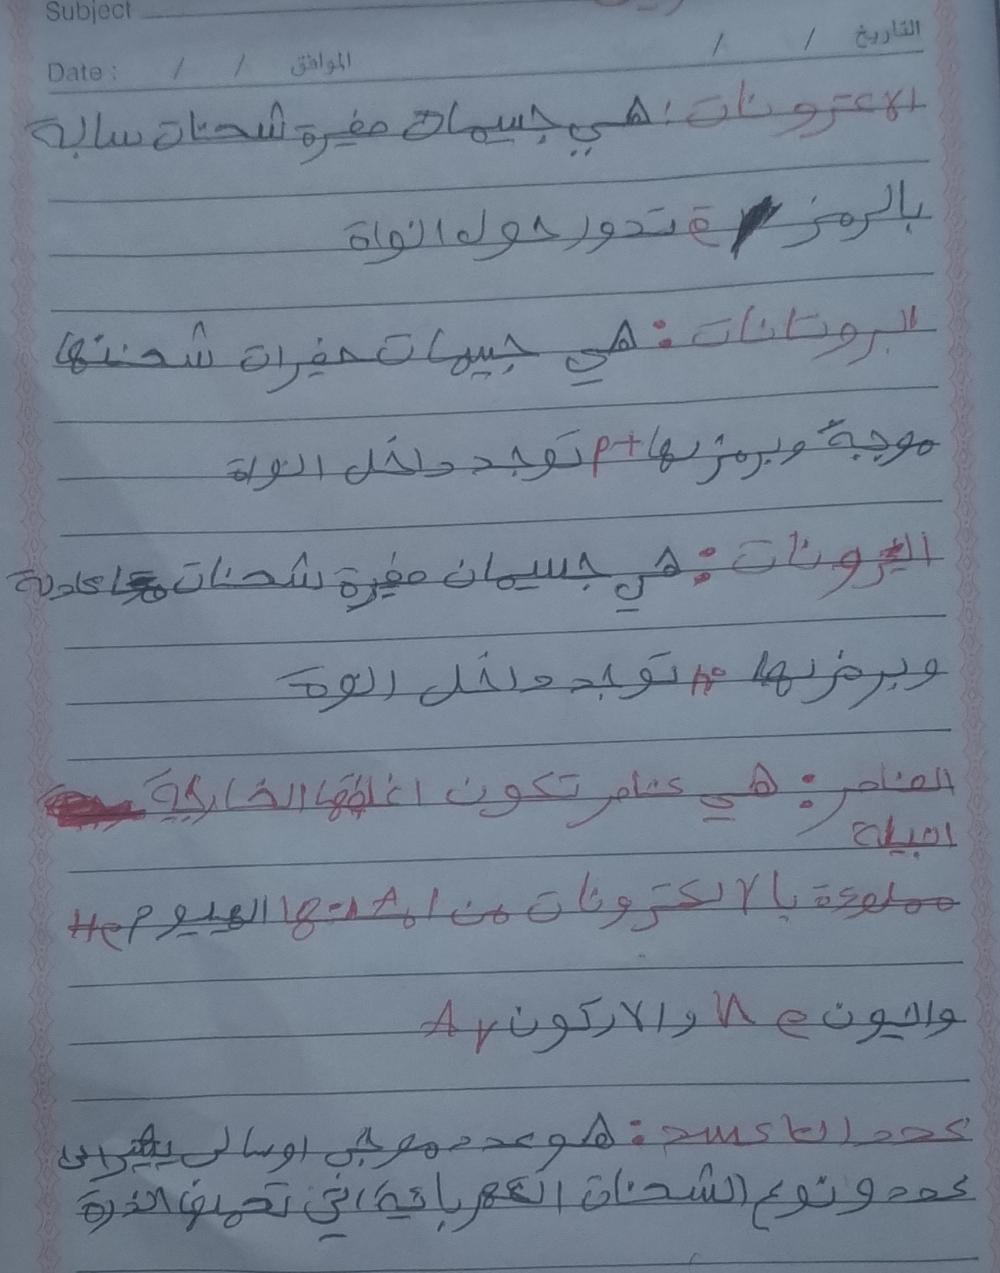 Subject
التاريخ / /
Date : / / الموافق
الاكترونات : هي جسيمات صغيرة شحنات سالبة
بالرمز e تدور حول النواة
البروتانات : هي جسيمات صغيرات شحنتها
موجبة ويرمز لها p+ توجد داخل النواة
النيرونات : هي جسيمات صغيرة شحنات
ويرمز لها n° توجد داخل النوة
العناصر : هي عناصر تكون اغلفتها الخارجية
مملوءة بالالكترونات من الهيليوم He
والنيون Ne والاركون Ar
عدد التاكسد : هو عدد موجب او سالب يشير الى
عدد ونوع الشحنات الكهربائية التي تحملها الذرة